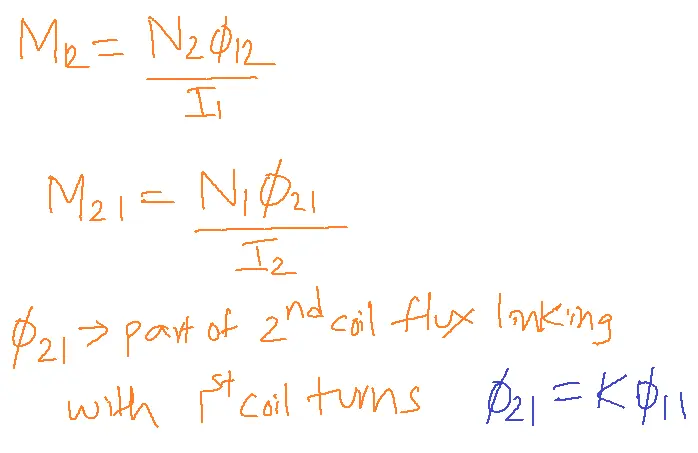 M12 = N2 ϕ12 / I1
M21 = N1 ϕ21 / I2
ϕ21 → part of 2nd coil flux linking
with 1st coil turns ϕ21 = K ϕ11